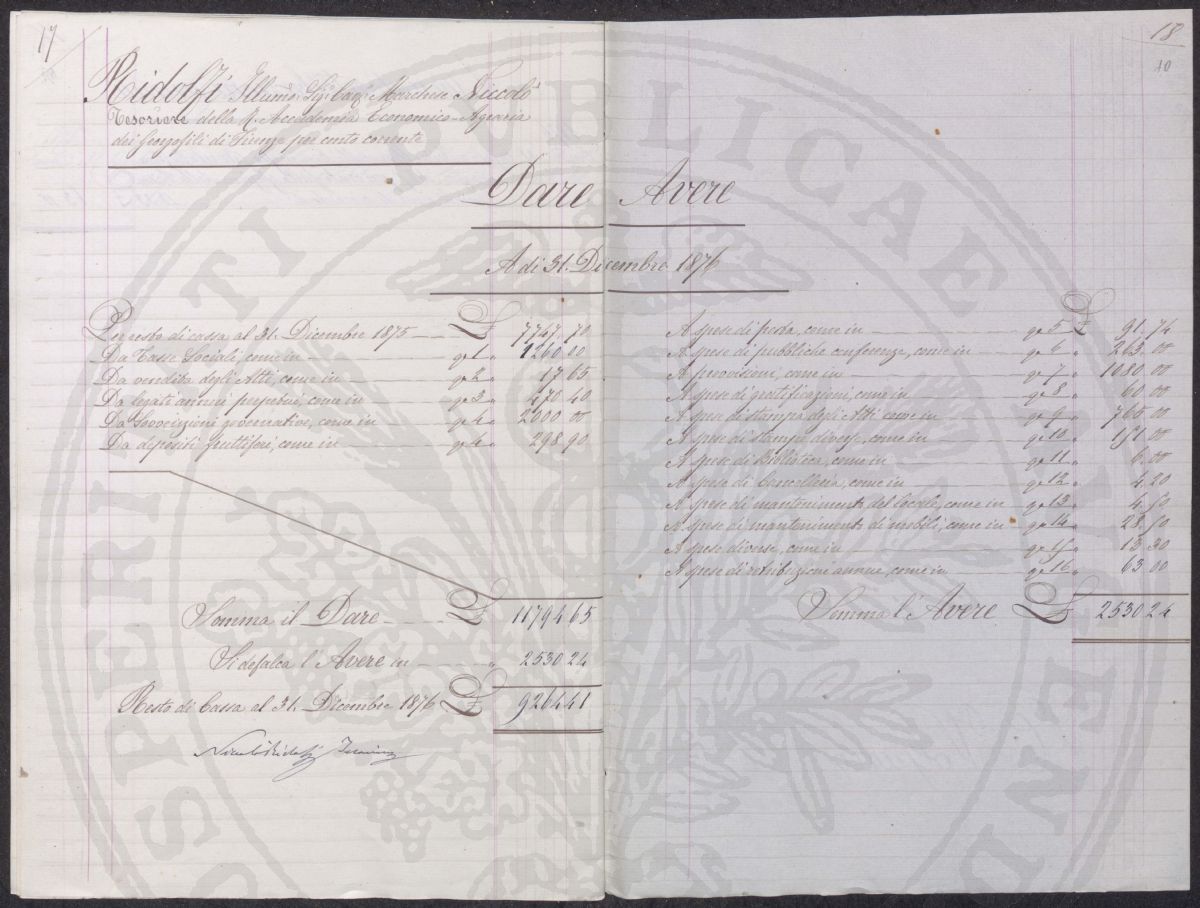 17
Ridolfi Illumo. Sig. Cav. Marchese Niccolò
Tesoriere della R. Accademia Economico-Agraria
dei Georgofili di Firenze per conto corrente
Dare
Per resto di cassa al 31. Dicembre 1875 £ 7747.70
Da Tasse Sociali, come in ga 1 " 1260 00
Da vendita degli Atti, come in ga 2 " 17 65
Da legati annui perpetui, come in ga 3 " 470 40
Da Sovvenzioni governative, come in ga 4 " 2000 00
Da depositi fruttiferi, come in ga 4 " 298.90
Somma il Dare £ 11794 65
Si defalca l'Avere in " 2530 24
Resto di Cassa al 31. Dicembre 1876 £ 9264 41
Niccolò Ridolfi
18
10
Avere
A di 31. Dicembre 1876
A spese di posta, come in ga 5 £ 91.74
A spese di pubbliche conferenze, come in ga 6 " 263.00
A provvisioni, come in ga 7 " 1080 00
A spese di gratificazioni, come in ga 8 " 60 00
A spese di stampa degli Atti come in ga 9 " 765.00
A spese di stampe diverse, come in ga 10 " 151.00
A spese di Biblioteca, come in ga 11 " 6.00
A spese di Cancelleria, come in ga 12 " 4.20
A spese di mantenimento del locale, come in ga 13 " 4.50
A spese di mantenimento di mobili, come in ga 14 " 28.50
A spese diverse, come in ga 15 " 13.30
A spese di retribuzioni annue, come in ga 16 " 63.00
Somma l'Avere £ 2530 24